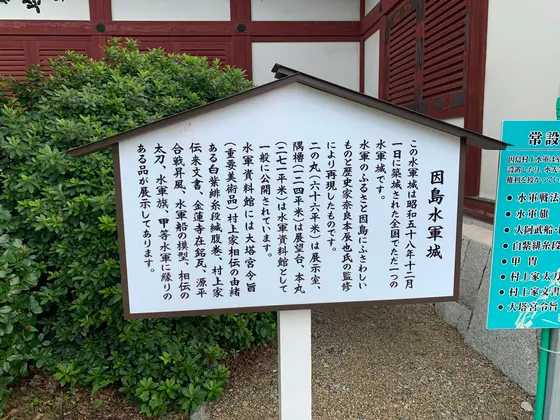 因島水軍城
この水軍城は昭和五十八年十二月
一日に築城された全国でたた一つの
水軍城です。
水軍のふるさと因島にふさわしい
ものと歴史家奈良本辰也氏の監修
により再現したものです。
二の丸(六十六平米)は展示室、
隅櫓(二四平米)は展望台、本丸
(二七二平米)は水軍資料館として
一般に公開されています。
水軍資料館には大塔宮令旨
(重要美術品)村上家相伝の由緒
ある白紫緋糸段縅腹巻、村上家
伝来文書、金蓮寺在銘瓦、源平
合戦昇風、水軍船の模型、相伝の
太刀、水軍旗、甲等水軍に縁りの
ある品が展示してあります。
常設
因島村上水軍は
権利を授かってい
●水軍戦法
●水軍旗
●大阿武船・
●白紫緋糸段
●甲冑
●村上家太刀
●村上家文書
●大塔宮令旨